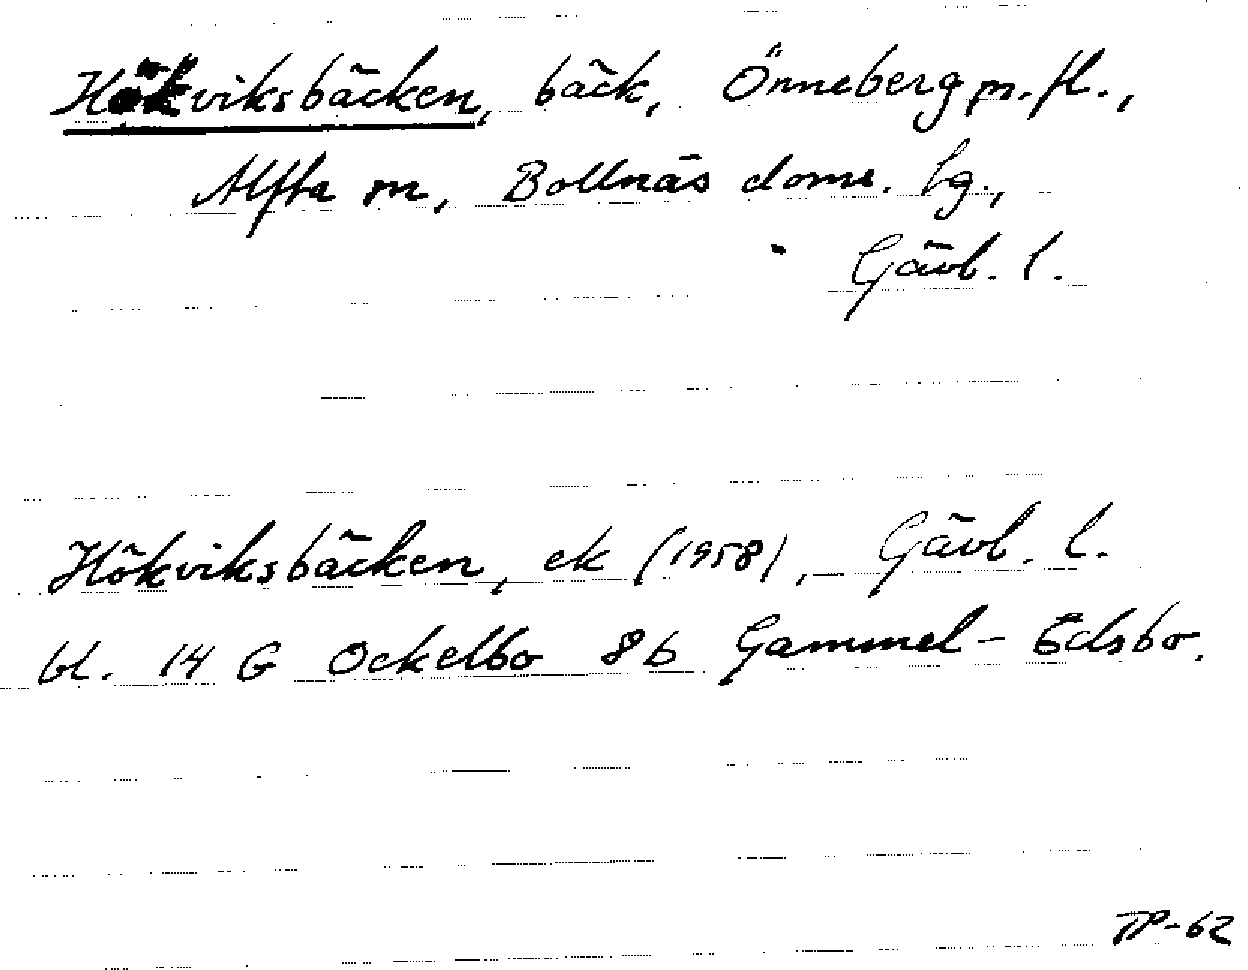 Hökviksbäcken, bäck, Önneberg m.fl.,
Alfta sn, Bollnäs doms. lg.,
Gävl. l.
Hökviksbäcken, ek (1958), Gävl. l.
bl. 14 G Ockelbo 8b Gammel-Edsbo.
TP-62